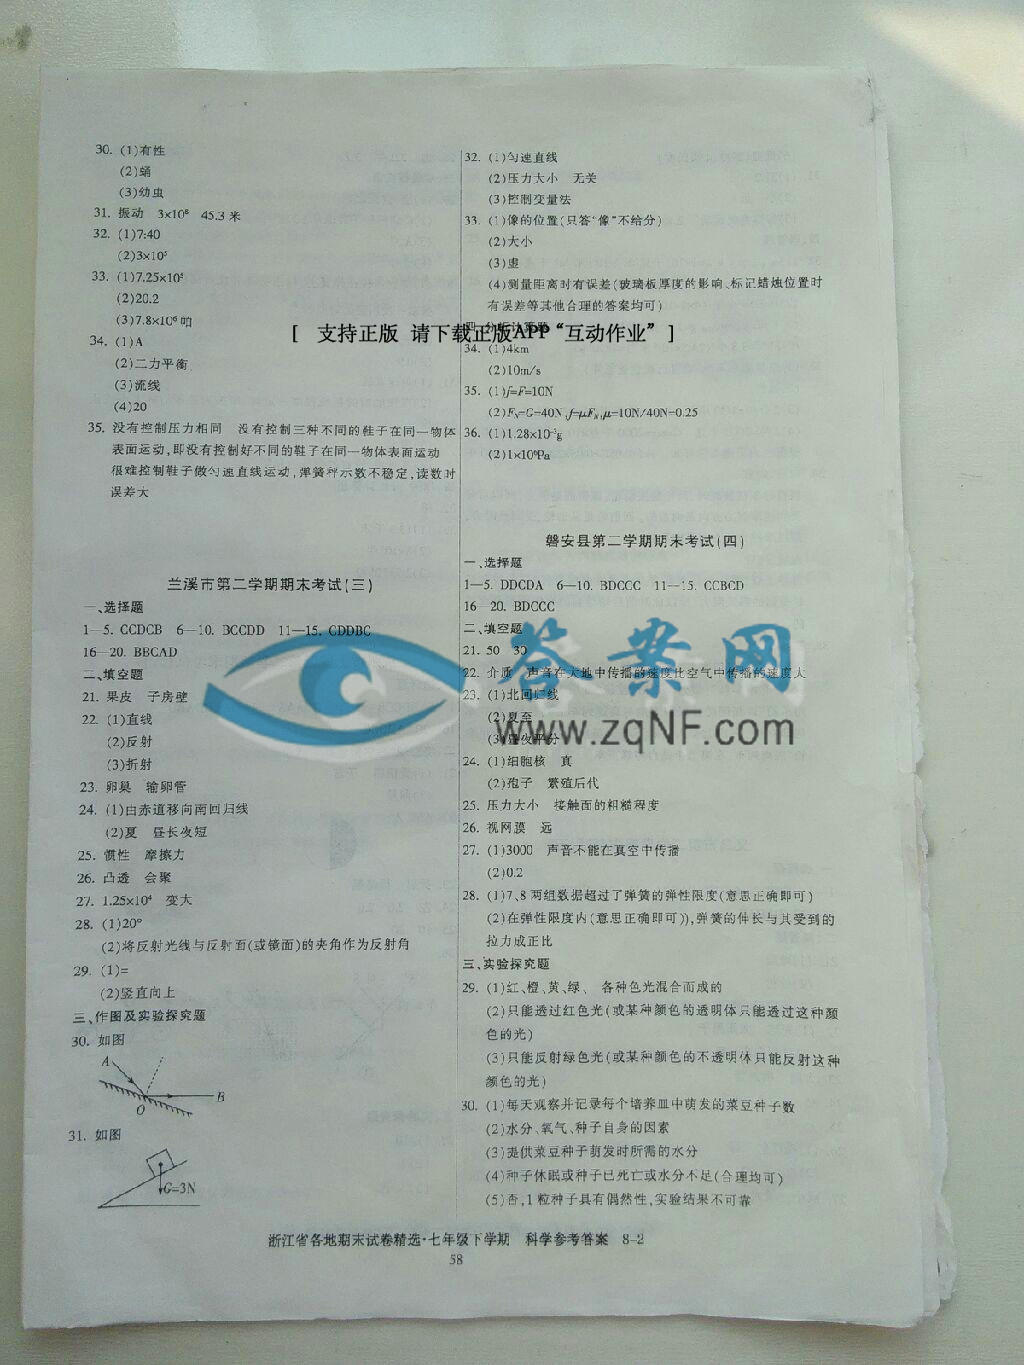 30. (1)有性
(2)蛹
(3)幼虫
31. 振动 3×10⁸ 45.3 米
32. (1)7:40
(2)3×10⁵
33. (1)7.25×10⁵
(2)20.2
(3)7.8×10⁶ 帕
34. (1)A
(2)二力平衡
(3)流线
(4)20
35. 没有控制压力相同 没有控制三种不同的鞋子在同一物体
表面运动,即没有控制好不同的鞋子在同一物体表面运动
很难控制鞋子做匀速直线运动,弹簧秤示数不稳定,读数时
误差大
兰溪市第二学期期末考试(三)
一、选择题
1—5. CCDCB 6—10. BCCDD 11—15. CDDBC
16—20. BBCAD
二、填空题
21. 果皮 子房壁
22. (1)直线
(2)反射
(3)折射
23. 卵巢 输卵管
24. (1)由赤道移向南回归线
(2)夏 昼长夜短
25. 惯性 摩擦力
26. 凸透 会聚
27. 1.25×10⁴ 变大
28. (1)20°
(2)将反射光线与反射面(或镜面)的夹角作为反射角
29. (1)=
(2)竖直向上
三、作图及实验探究题
30. 如图
A
O
B
31. 如图
G=3N
32. (1)匀速直线
(2)压力大小 无关
(3)控制变量法
33. (1)像的位置(只答“像”不给分)
(2)大小
(3)虚
(4)测量距离时有误差(玻璃板厚度的影响、标记蜡烛位置时
有误差等其他合理的答案均可)
[ 支持正版 请下载正版APP“互动作业” ]
四、分析计算题
34. (1)4km
(2)10m/s
35. (1)f=F=10N
(2)F_N=G=40N,f=μF_N,μ=10N/40N=0.25
36. (1)1.28×10⁻³g
(2)1×10⁶Pa
磐安县第二学期期末考试(四)
一、选择题
1—5. DDCDA 6—10. BDCCC 11—15. CCBCD
16—20. BDCCC
二、填空题
21. 50 30
22. 介质 声音在大地中传播的速度比空气中传播的速度大
23. (1)北回归线
(2)夏至
(3)昼夜平分
24. (1)细胞核 真
(2)孢子 繁殖后代
25. 压力大小 接触面的粗糙程度
26. 视网膜 远
27. (1)3000 声音不能在真空中传播
(2)0.2
28. (1)7、8两组数据超过了弹簧的弹性限度(意思正确即可)
(2)在弹性限度内(意思正确即可)),弹簧的伸长与其受到的
拉力成正比
三、实验探究题
29. (1)红、橙、黄、绿、 各种色光混合而成的
(2)只能透过红色光(或某种颜色的透明体只能透过这种颜
色的光)
(3)只能反射绿色光(或某种颜色的不透明体只能反射这种
颜色的光)
30. (1)每天观察并记录每个培养皿中萌发的菜豆种子数
(2)水分、氧气、种子自身的因素
(3)提供菜豆种子萌发时所需的水分
(4)种子休眠或种子已死亡或水分不足(合理均可)
(5)否,1粒种子具有偶然性,实验结果不可靠
答案网
www.zqNF.com
浙江省各地期末试卷精选·七年级下学期 科学参考答案 8-2
58